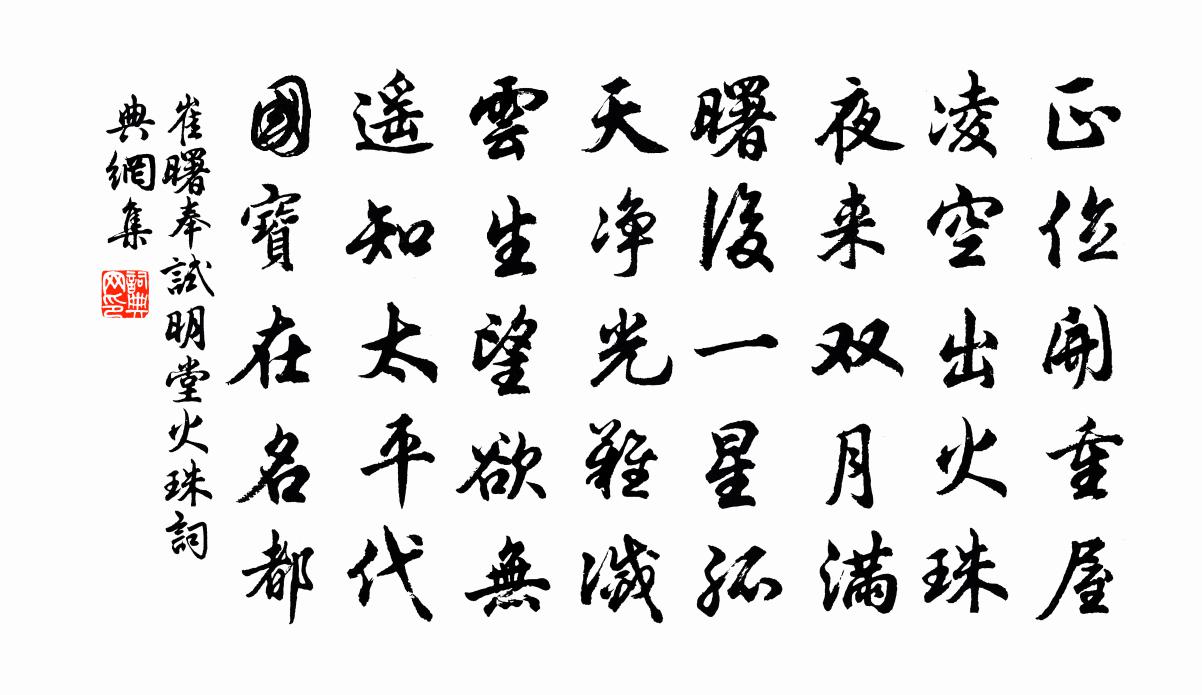 正位開重屋
凌空出火珠
夜来双月满
曙後一星孤
天净光難滅
雲生望欲無
遥知太平代
國寶在名都
崔曙奉試明堂火珠詞
典網集
詞典网印